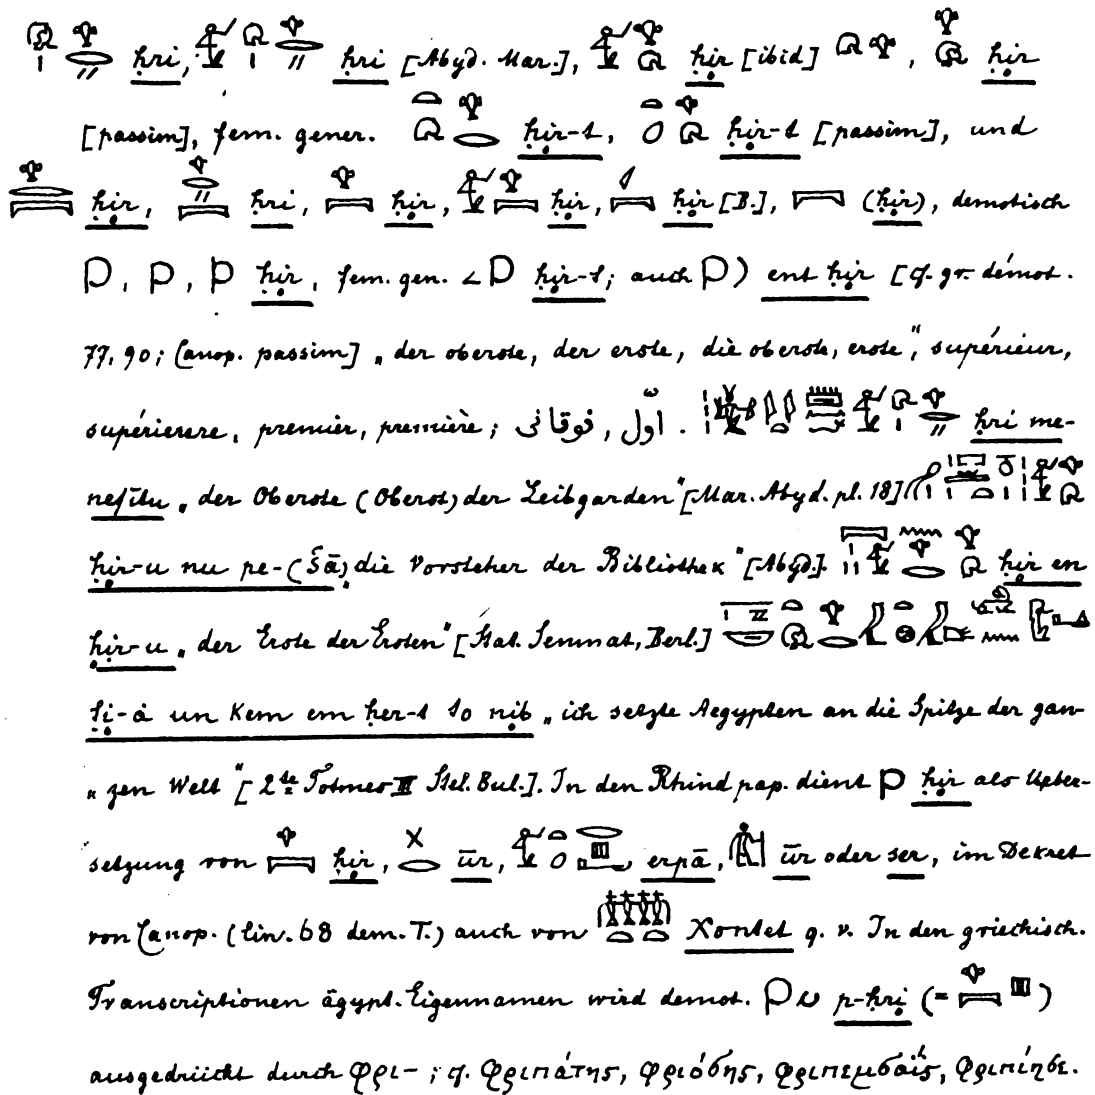 ḥri, ḥri [Abyd. Mar.], ḥir [ibid], ḥir
[passim], fem. gener. ḥir-t, ḥir-t [passim], und
ḥir, ḥri, ḥir, ḥir, ḥir [B.], (ḥir), demotisch
ḥir, fem. gen. ḥir-t; auch ent ḥir [cf. gr. démot.
77, 90; Canop. passim] „der oberste, der erste, die oberste, erste“, supérieur,
supérieure, premier, première; فوقانى, اوّل . ḥri me-
nefitu „der Oberste (Oberst) der Leibgarden“ [Mar. Abyd. pl. 18]
ḥir-u nu pe-(šā) „die Vorsteher der Bibliothek“ [Abyd.]. ḥir en
ḥir-u „der Erste der Ersten“ [Stat. Senmat, Berl.]
ti-ȧ un Kem em ḥer-t to nib „ich setzte Aegypten an die Spitze der gan-
„zen Welt“ [2te Totmes III Stel. Bul.]. In den Rhind pap. dient ḥir als Ueber-
setzung von ḥir, ūr, erpā, ūr oder ser, im Dekret
von Canop. (lin. 68 dem. T.) auch von Xontet q. v. In den griechisch.
Transcriptionen ägypt. Eigennamen wird demot. p-ḥri (= )
ausgedrückt durch φρι- ; cf. Φριπάτης, Φριόβης, Φριπεμσάϊς, Φριπίησε.